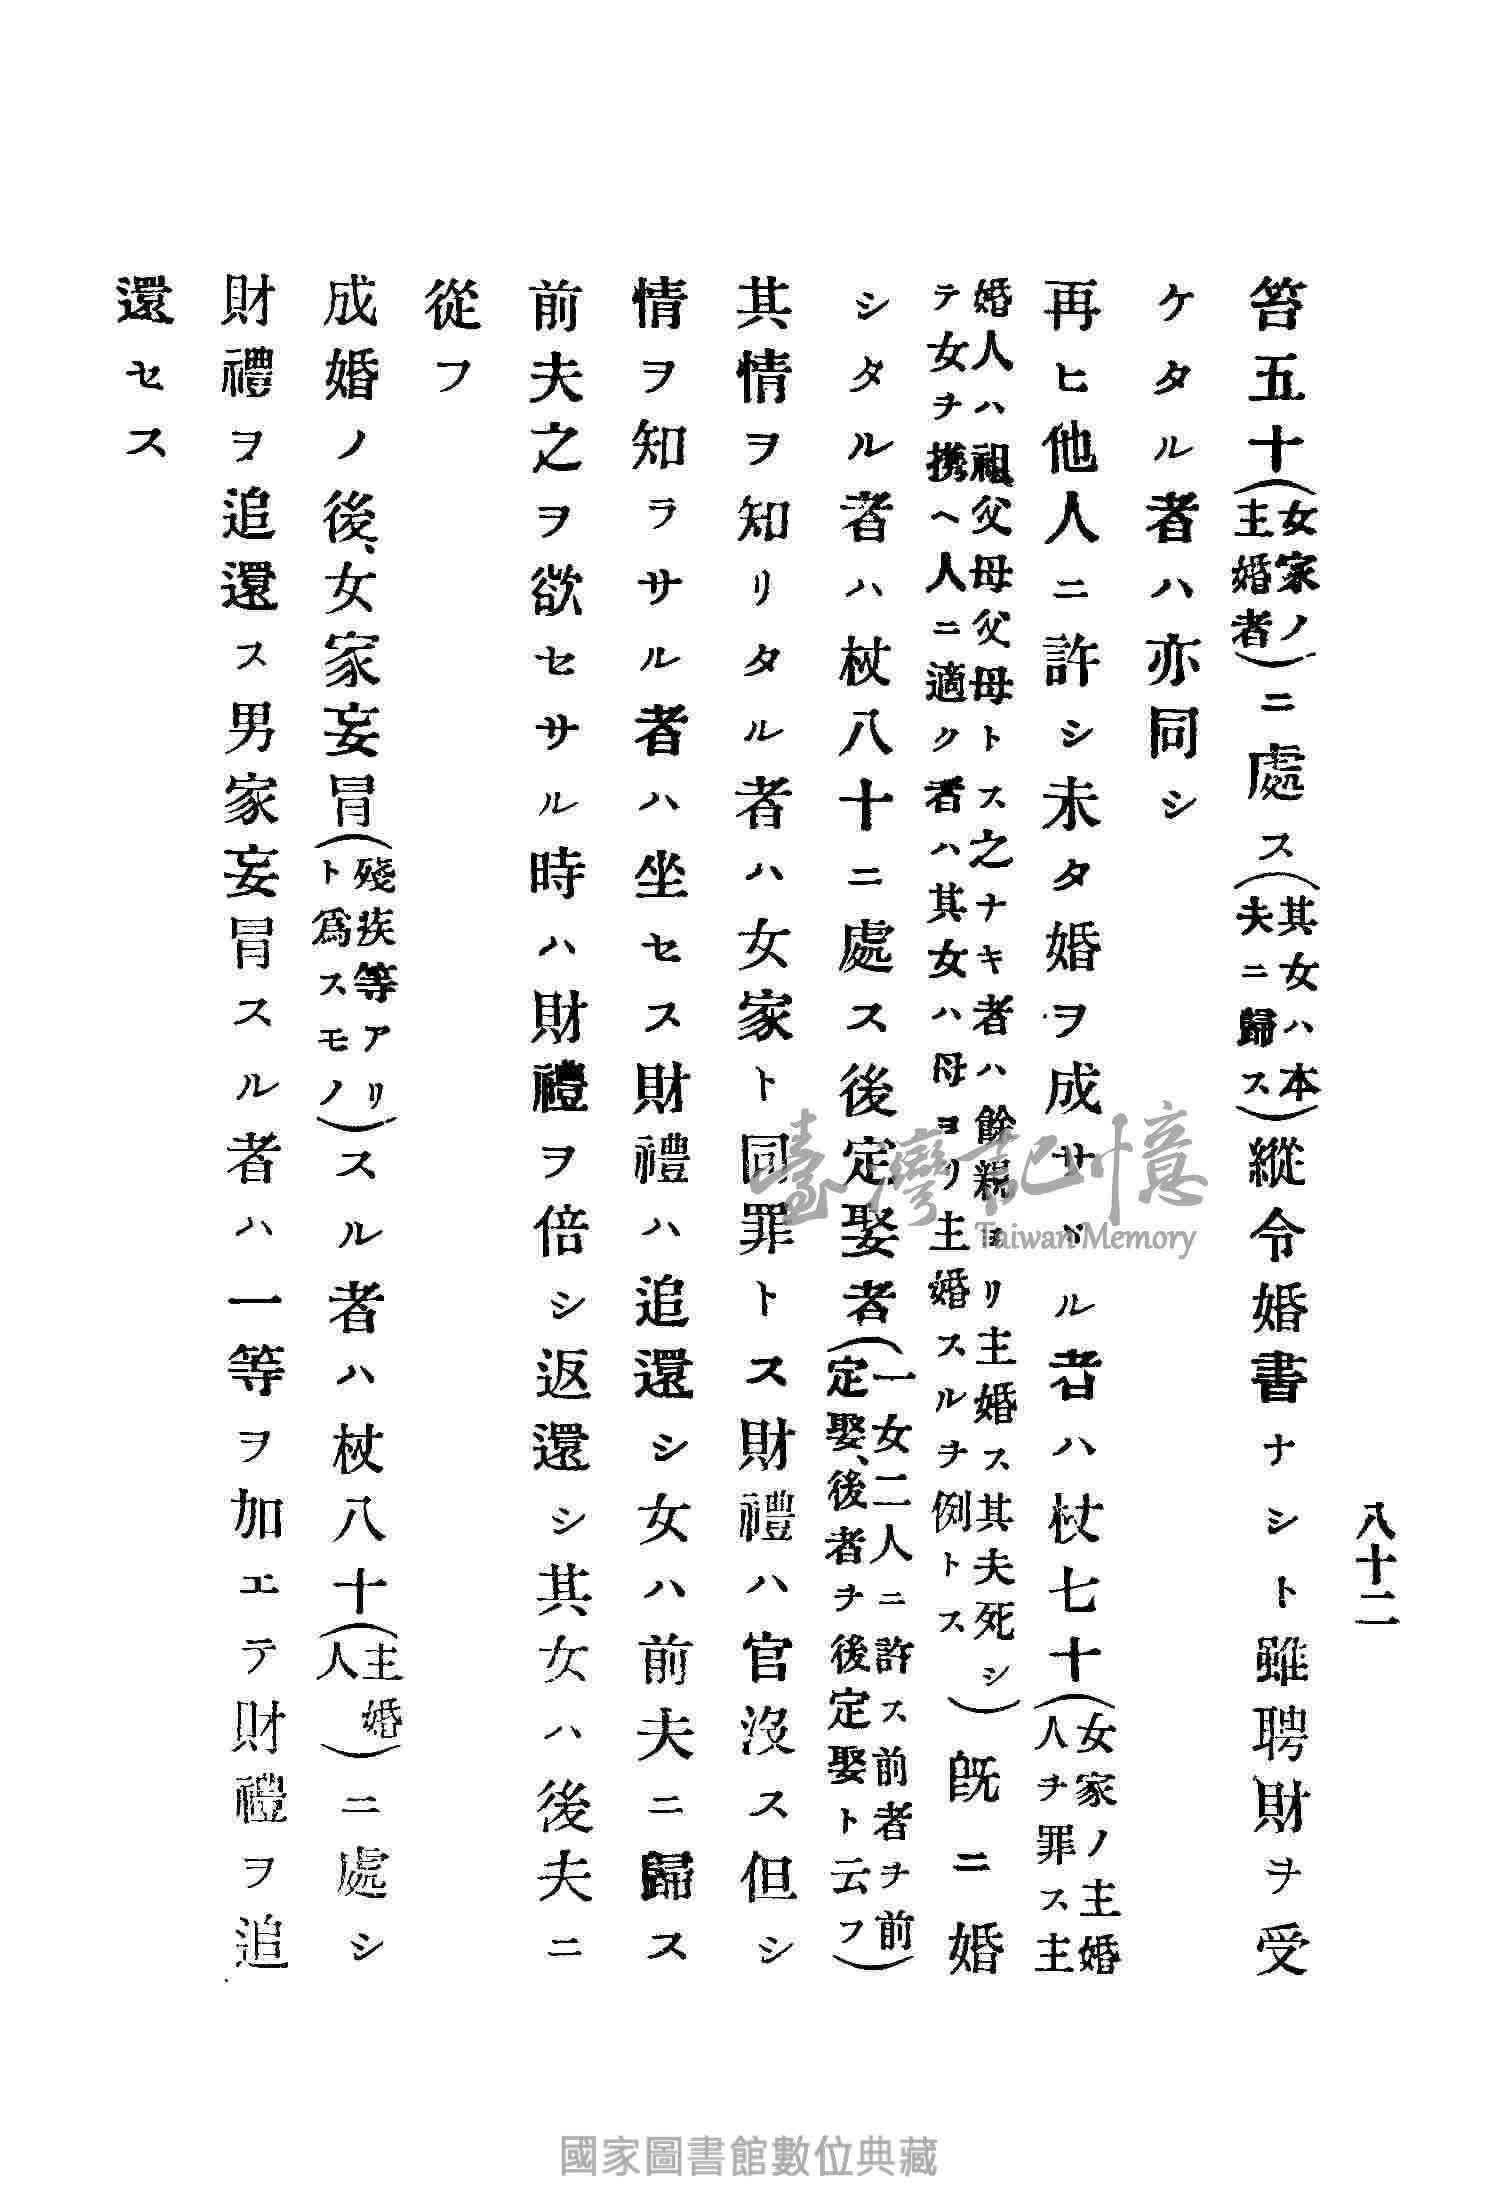 八十二
笞五十(女家ノ主婚者)ニ處ス(其女ハ本夫ニ歸ス)縱令婚書ナシト雖聘財ヲ受
ケタル者ハ亦同シ
再ヒ他人ニ許シ未タ婚ヲ成サヾル者ハ杖七十(女家ノ主婚人ヲ罪ス主
婚人ハ祖父母父母トス之ナキ者ハ餘親ヨリ主婚ス其夫死シテ女ヲ携ヘ人ニ適ク者ハ其女ハ母ヨリ主婚スルヲ例トス)既ニ婚
シタル者ハ杖八十ニ處ス後定娶者(一女二人ニ許ス前者ヲ前定娶、後者ヲ後定娶ト云フ)
其情ヲ知リタル者ハ女家ト同罪トス財禮ハ官沒ス但シ
情ヲ知ラサル者ハ坐セス財禮ハ追還シ女ハ前夫ニ歸ス
前夫之ヲ欲セサル時ハ財禮ヲ倍シ返還シ其女ハ後夫ニ
從フ
成婚ノ後、女家妄冒(殘疾等アリト爲スモノ)スル者ハ杖八十(主婚人)ニ處シ
財禮ヲ追還ス男家妄冒スル者ハ一等ヲ加エテ財禮ヲ追
還セス
臺灣記憶
Taiwan Memory
國家圖書館數位典藏